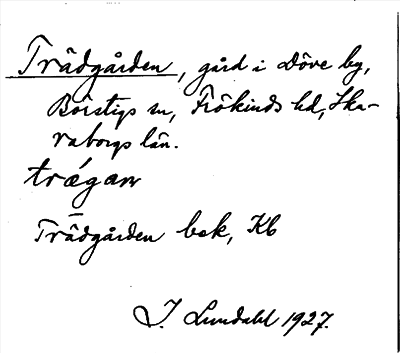 Trädgården, gård i Döve by,
Börstigs sn, Frökinds hd, Ska-
raborgs län.
trǽgaṇ
Trädgården bek, Kb
I. Lundahl 1927.